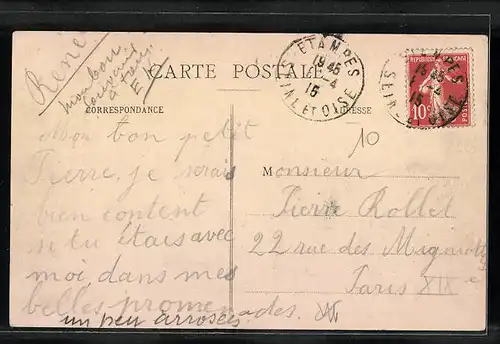 René
mon bon
souvenir
à tous
CARTE POSTALE
CORRESPONDANCE
ADRESSE
ETAMPES
19 45
-4
15
SEINE ET OISE
REPUBLIQUE FRANÇAISE
10c
10
Mon bon petit
Pierre, je serais
bien content
si tu étais avec
moi, dans mes
belles promenades.
un peu arrosées.
Monsieur
Pierre Rollet
22 rue des Mignottes
Paris XIXe